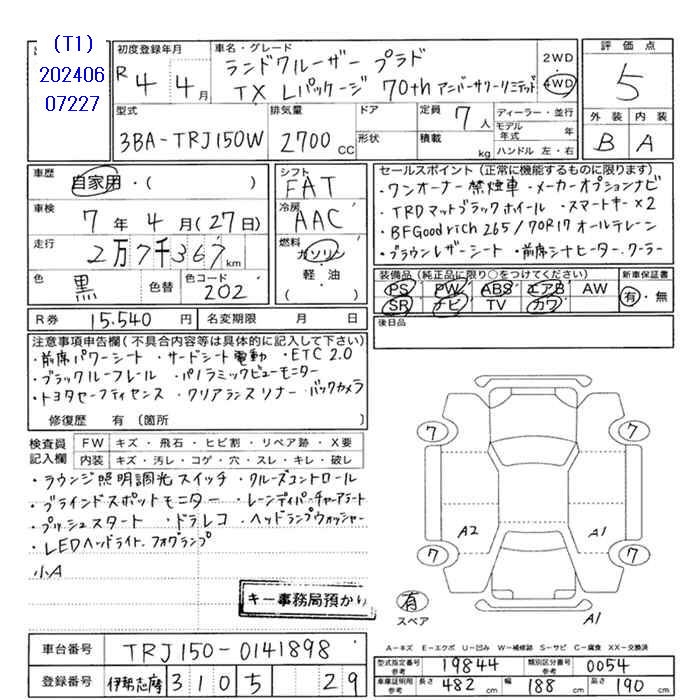 (T1)
202406
07227
初度登録年月
R 4年 4月
車名・グレード
ランドクルーザー プラド
TX Lパッケージ 70th アニバーサリーリミテッド
2WD
4WD
評価点
5
外装 内装
B A
型式
3BA-TRJ150W
排気量
2700 CC
ドア
形状
定員 7人
積載 kg
ディーラー・並行
モデル年式 年
ハンドル 左・右
車歴
自家用・( )
車検
7年4月(27日)
走行
2万7千367km
色
黒
色替
色コード
202
シフト
FAT
冷房
AAC
燃料
ガソリン
軽・油
( )
セールスポイント(正常に機能するものに限ります)
・ワンオーナー 禁煙車 ・メーカーオプションナビ
・TRDマットブラックホイール ・スマートキー×2
・BFGoodrich 265/70R17 オールテレーン
・ブラウンレザーシート ・前席シートヒーター、クーラー
装備品(純正品に限り○をつけてください)
PS PW ABS エアB AW
SR ナビ TV カワ
新車保証書
有・無
後日品
R券 15.540円
名変期限 月 日
注意事項申告欄(不具合内容等は具体的に記入して下さい)
・前席パワーシート ・サードシート電動 ・ETC2.0
・ブラックルーフレール ・パノラミックビューモニター
・トヨタセーフティセンス ・クリアランスソナー ・バックカメラ
修復歴 有 〔箇所 〕
検査員記入欄
FW キズ・飛石・ヒビ割・リペア跡・X要
内装 キズ・汚レ・コゲ・穴・スレ・キレ・破レ
・ラウンジ照明調光スイッチ ・クルーズコントロール
・ブラインドスポットモニター ・レーンディパーチャーアラート
・プッシュスタート ・ドラレコ ・ヘッドランプウォッシャー
・LEDヘッドライト、フォグランプ
小A
キー事務局預かり
7
7
A2
A1
7
7
有
スペア
A1
A=キズ E=エクボ U=凹み W=補修跡 S=サビ C=腐食 XX=交換済
車台番号 TRJ150-0141898
登録番号 伊勢志摩 310 ら 29
型式指定番号 参考 19844
類別区分番号 参考 0054
車庫証明用 参考 長さ 482cm 幅 188cm 高さ 190cm